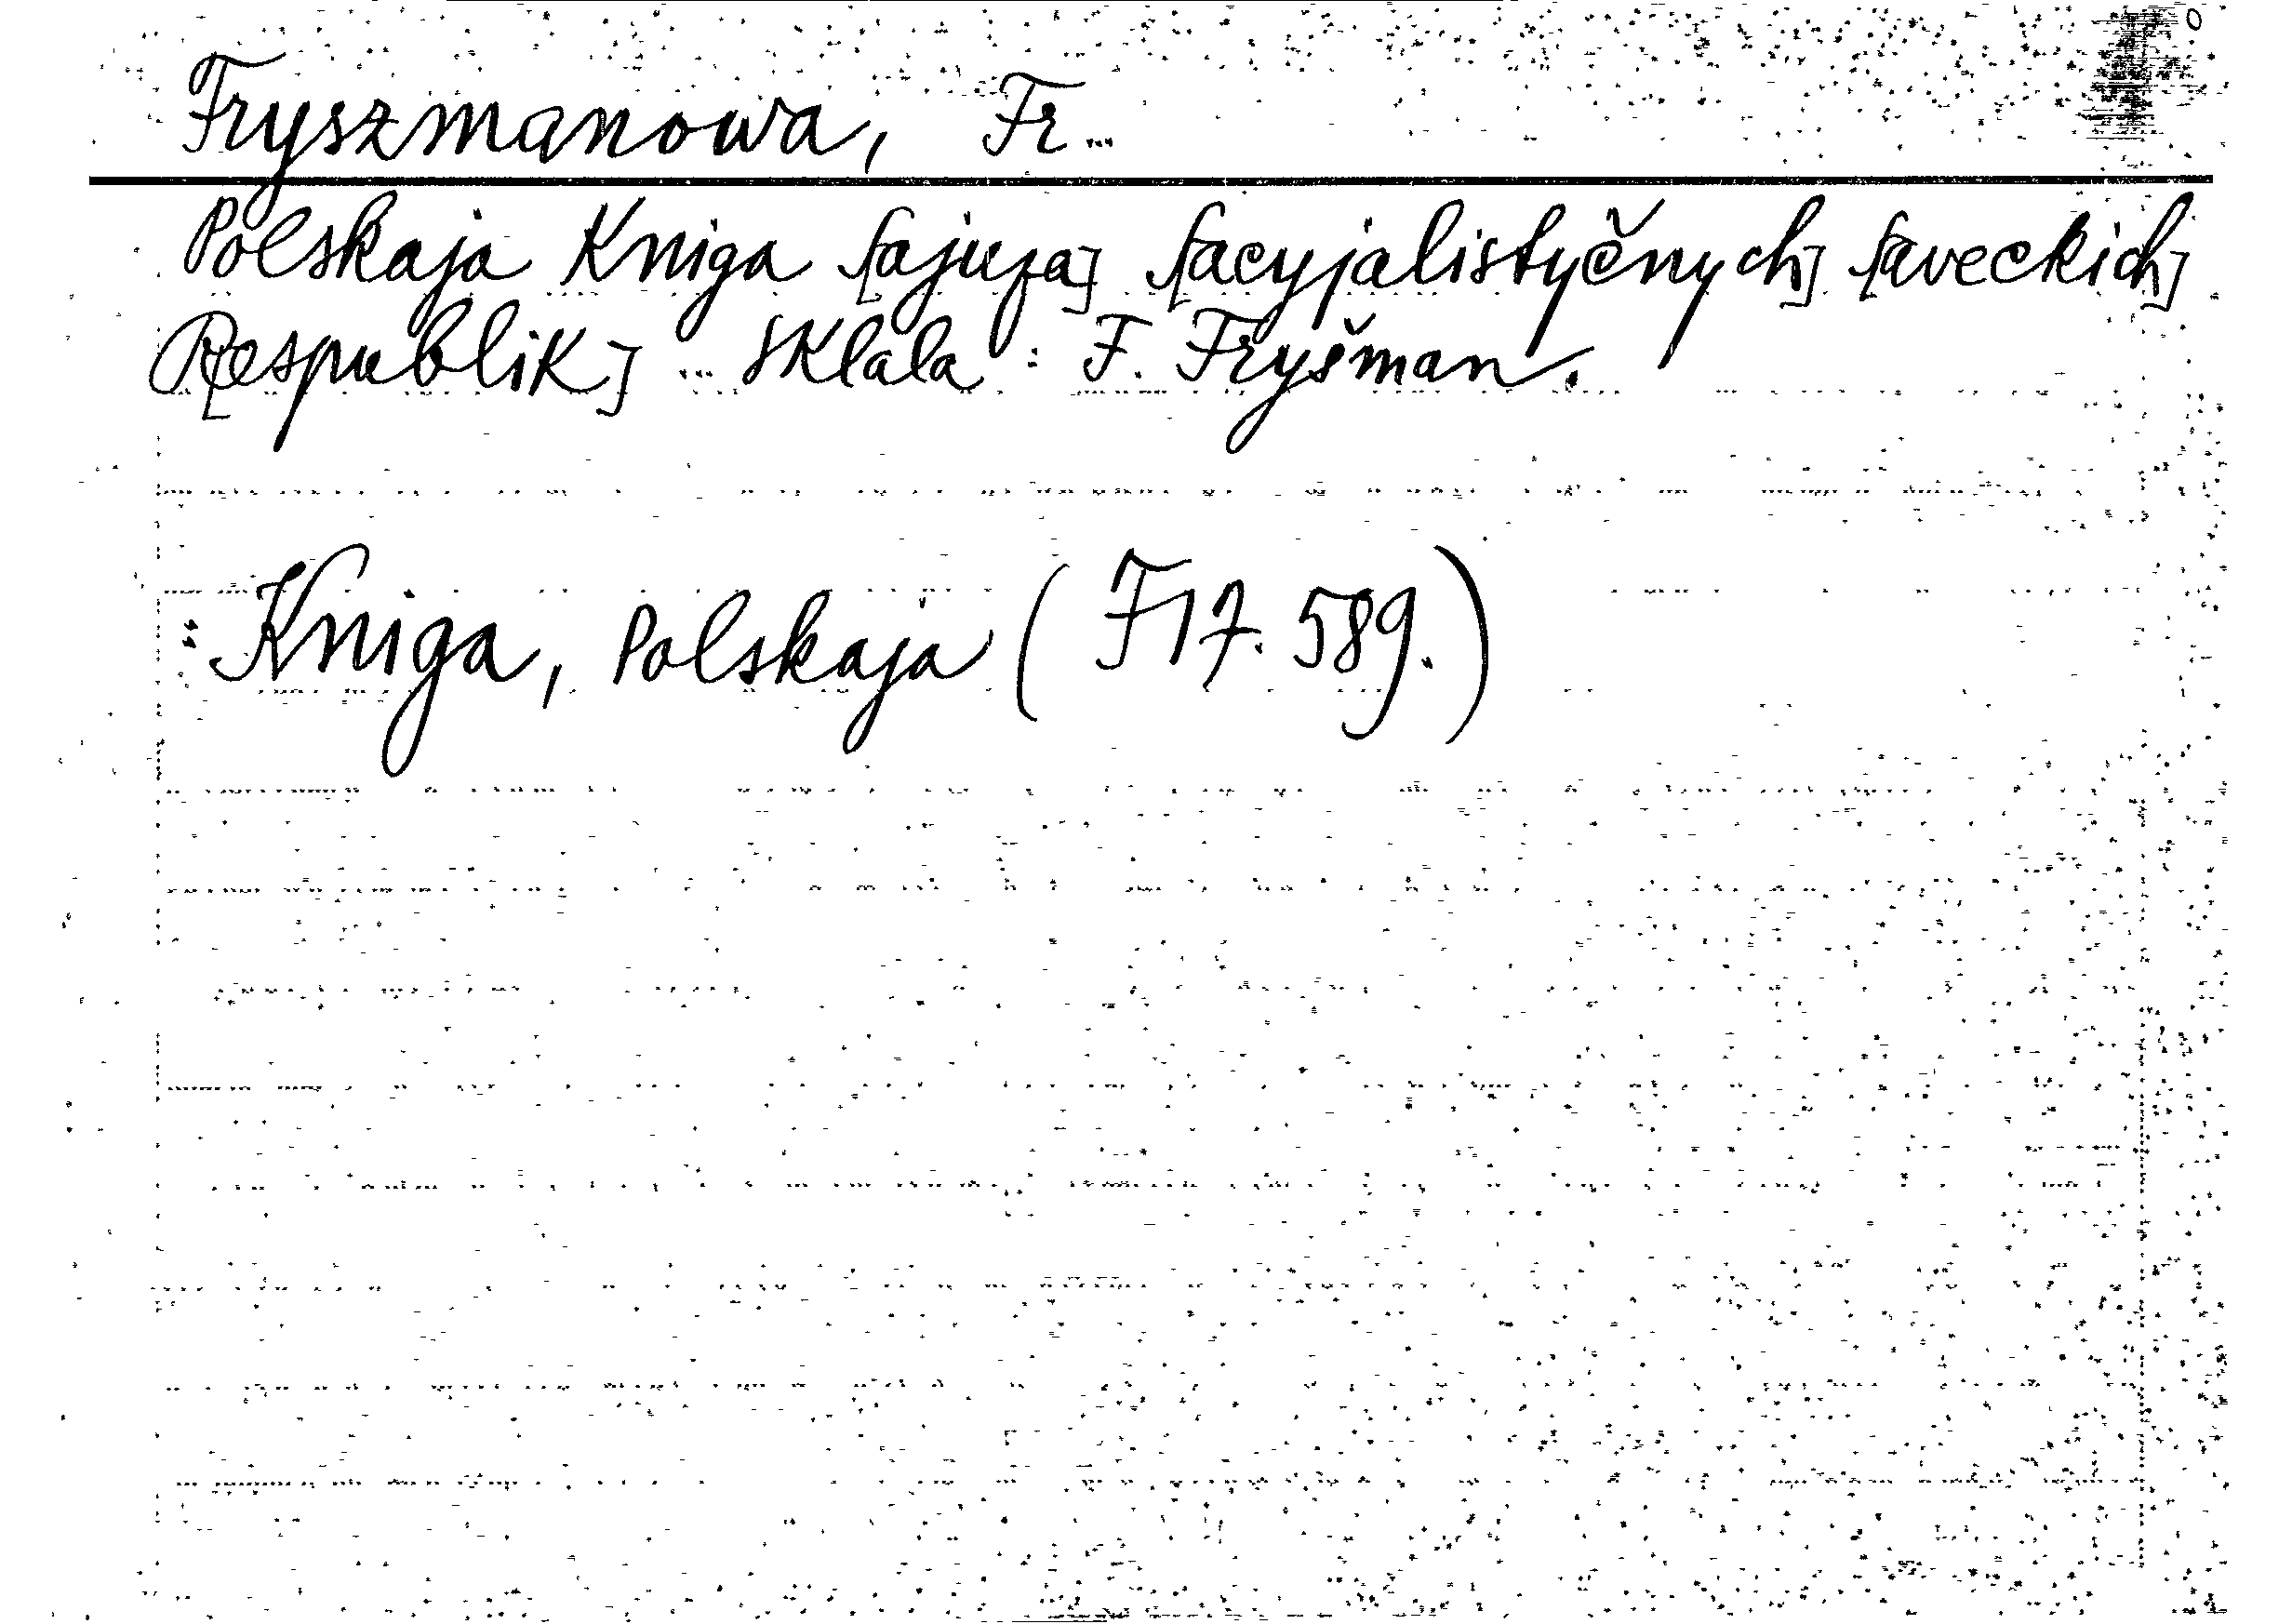 Fryszmanowa, Fr...
Polskaja Kniga S[ajuza] S[acyjalistyčnych] S[aveckich]
R[espublik] ... Sklala: F. Fryšman.
: Kniga, Polskaja (F17.589.)